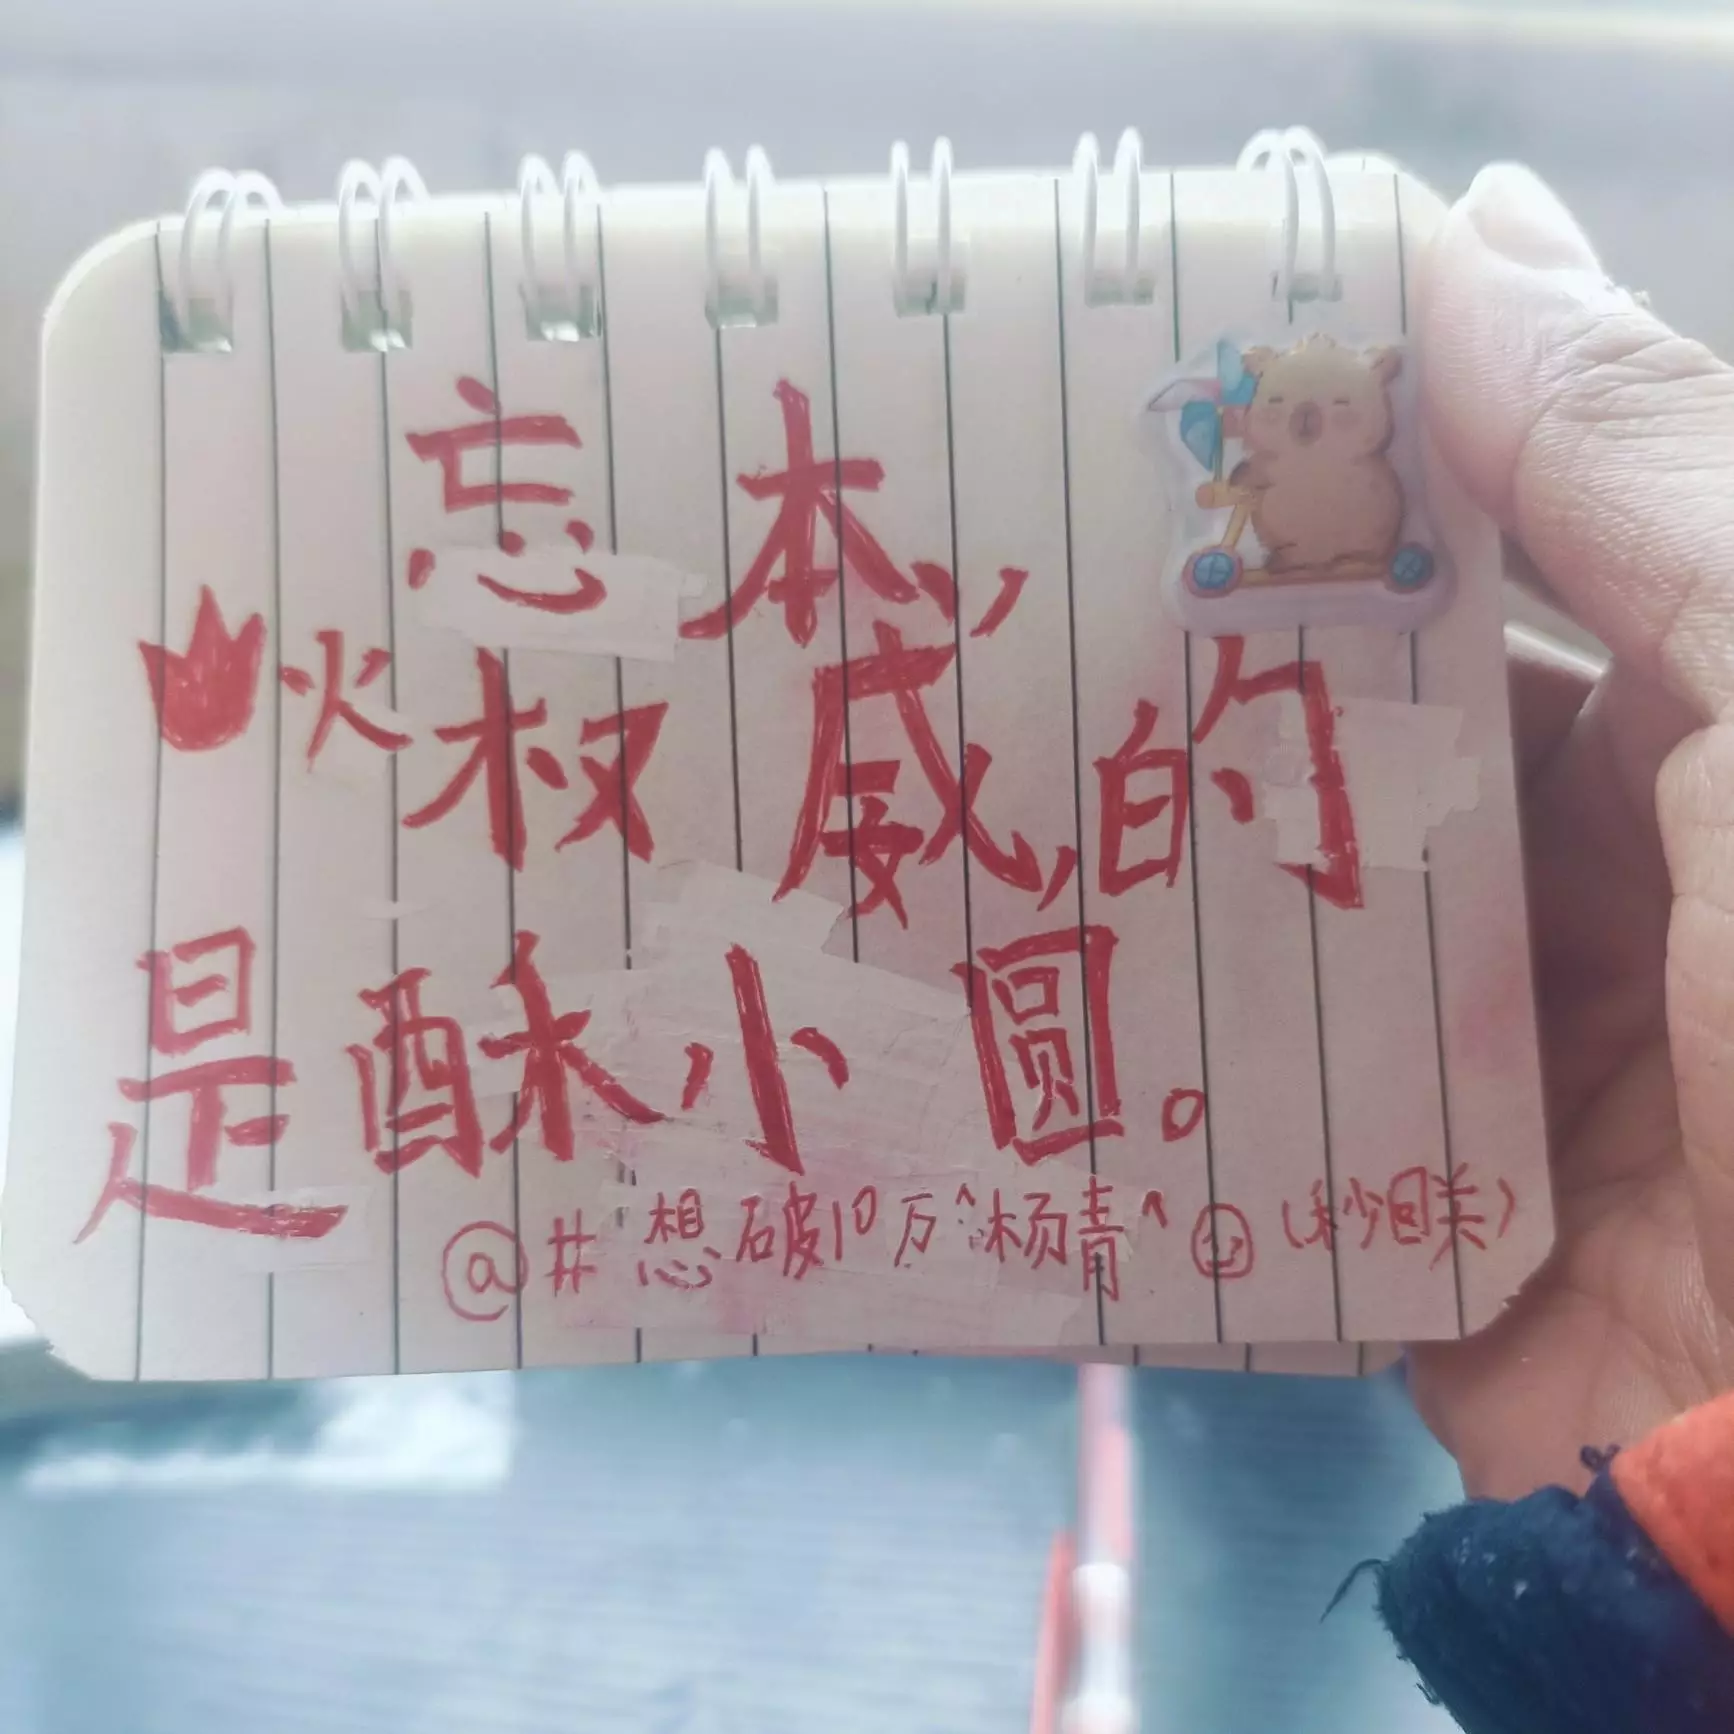 忘本，
火权威的
是酥小圆。
@#想破10万^杨青^(秒回关)